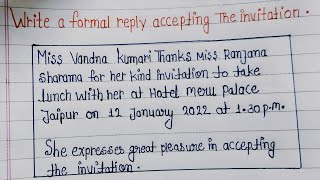 Write a formal reply accepting The invitation.
Miss Vandna Kumari Thanks Miss Ranjana
Sharama for her kind invitation to take
lunch with her at Hotel Meru Palace
Jaipur on 12 January 2022 at 1.30 p.m.
She expresses great pleasure in accepting
the invitation.